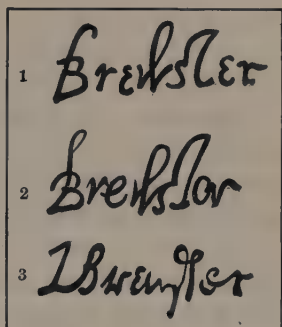 1 Brewster
2 Brewstor
3 Brewster